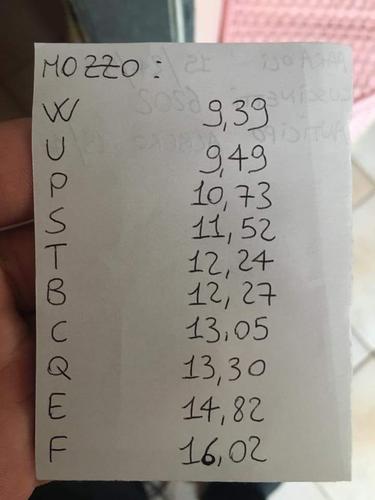 MOZZO:
W 9,39
U 9,49
P 10,73
S 11,52
T 12,24
B 12,27
C 13,05
Q 13,30
E 14,82
F 16,02